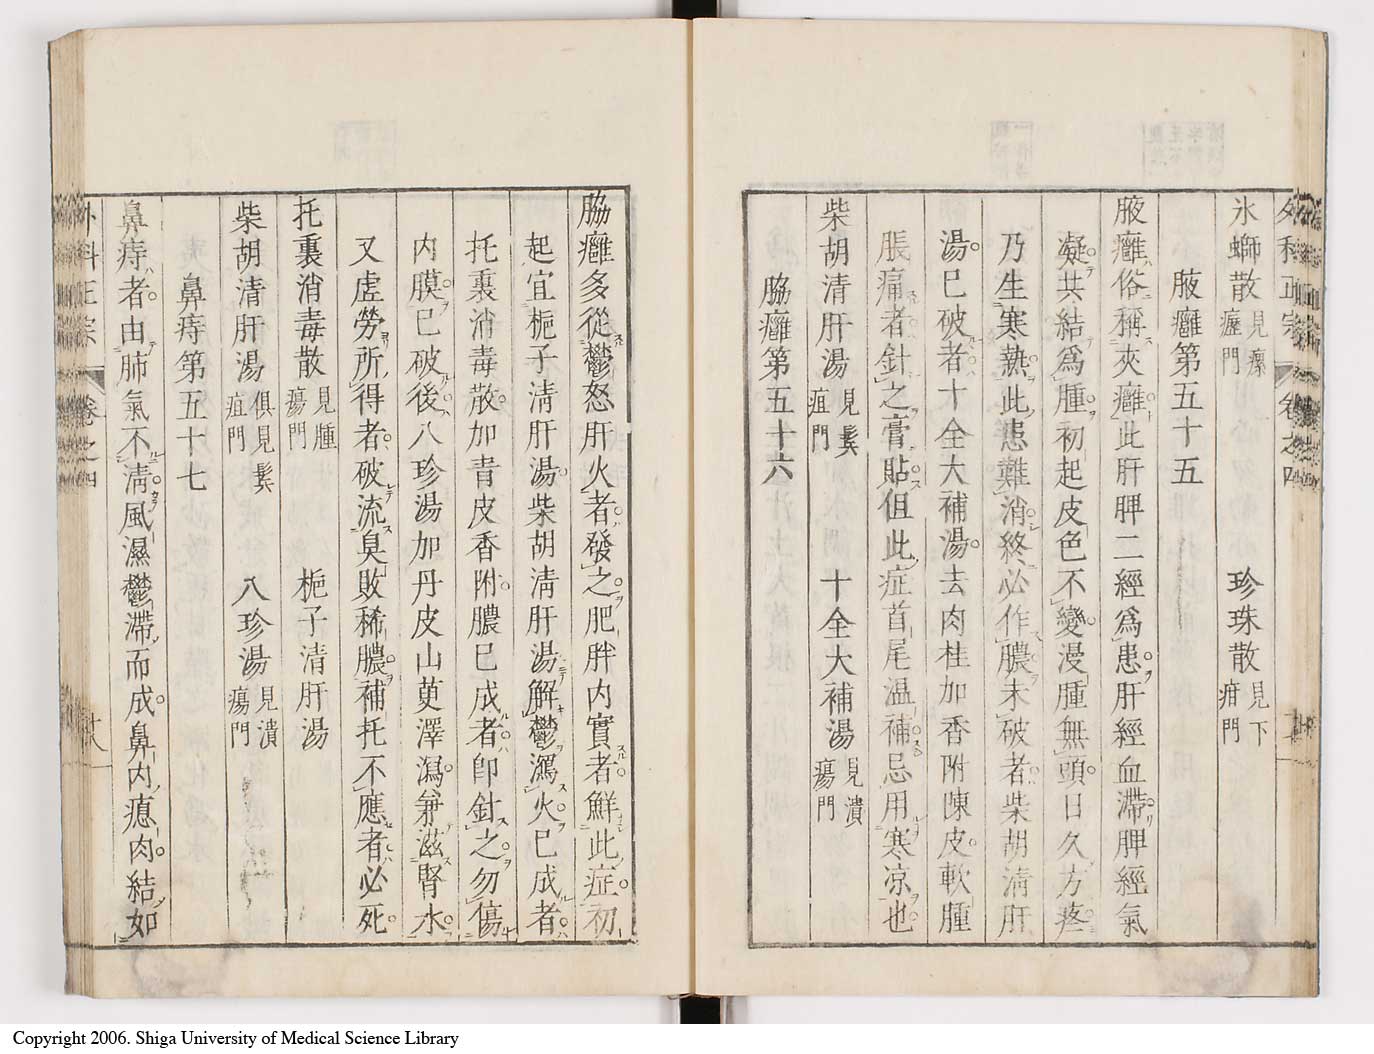 外科正宗 卷之四
氷螄散 見瘰癧門 珍珠散 見下疳門
腋癰第五十五
腋癰俗稱夾癰此肝脾二經爲患肝經血滯脾經氣
凝共結爲腫初起皮色不變漫腫無頭日久方疼
乃生寒熱此患難消終必作膿未破者柴胡清肝
湯已破者十全大補湯去肉桂加香附陳皮軟腫
脹痛者針之膏貼但此症首尾温補忌用寒凉也
柴胡清肝湯 見鬂疽門 十全大補湯 見潰瘍門
脇癰第五十六
脇癰多從鬱怒肝火者發之肥胖内實者鮮此症初
起宜梔子清肝湯柴胡清肝湯解鬱瀉火已成者
托裏消毒散加青皮香附膿已成者卽針之勿傷
内膜已破後八珍湯加丹皮山萸澤瀉兼滋腎水
又虚勞所得者破流臭敗稀膿補托不應者必死
托裏消毒散 見腫瘍門 梔子清肝湯
柴胡清肝湯 俱見鬂疽門 八珍湯 見潰瘍門
鼻痔第五十七
鼻痔者由肺氣不清風濕鬱滯而成鼻内瘜肉結如
外科正宗 卷之四 廿八
Copyright 2006. Shiga University of Medical Science Library